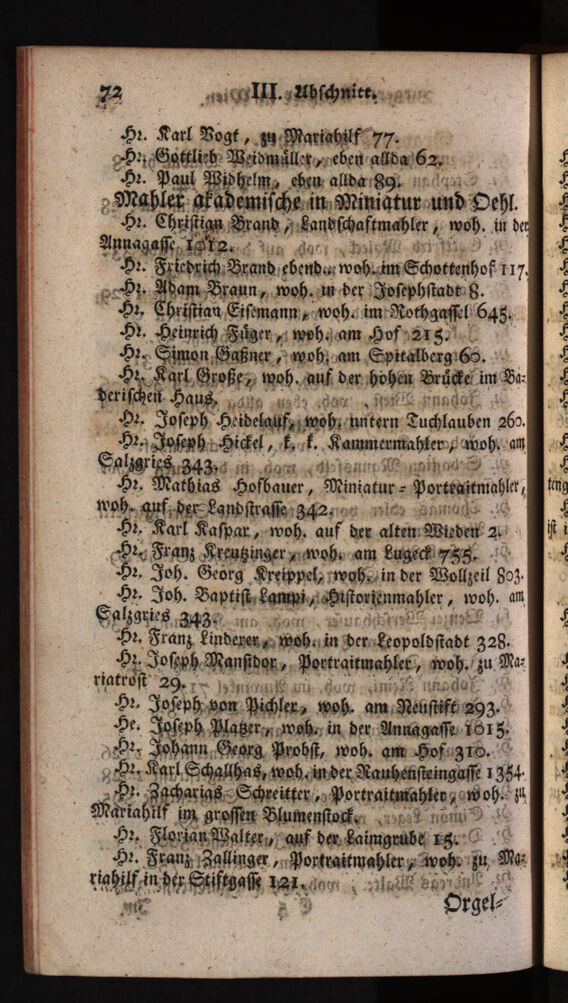 72 III. Abschnitt.
Hr. Karl Vogt, zu Mariahilf 77.
Hr. Gottlieb Weidmüller, eben allda 62.
Hr. Paul Widhelm, eben allda 89.
Mahler akademische in Miniatur und Oehl.
Hr. Christian Brand, Landschaftmahler, woh. in der
Annagasse 1012.
Hr. Friedrich Brand ebend. woh. im Schottenhof 117.
Hr. Adam Braun, woh. in der Josephstadt 8.
Hr. Christian Eisemann, woh. im Rothgassel 645.
Hr. Heinrich Füger, woh. am Hof 215.
Hr. Simon Gaßner, woh. am Spitalberg 60.
Hr. Karl Große, woh. auf der hohen Brücke im Ba=
derischen Haus.
Hr. Joseph Heidelauf, woh. untern Tuchlauben 260.
Hr. Joseph Hickel, k. k. Kammermahler, woh. am
Salzgries 343.
Hr. Mathias Hofbauer, Miniatur = Portraitmahler,
woh. auf der Landstrasse 342.
Hr. Karl Kaspar, woh. auf der alten Wieden 2.
Hr. Franz Kreutzinger, woh. am Lugeck 755.
Hr. Joh. Georg Kreippel, woh. in der Wollzeil 803.
Hr. Joh. Baptist Lampi, Historienmahler, woh. am
Salzgries 343.
Hr. Franz Linderer, woh. in der Leopoldstadt 328.
Hr. Joseph Mansfdor, Portraitmahler, woh. zu Ma=
riatrost 29.
Hr. Joseph von Pichler, woh. am Neustift 293.
He. Joseph Platzer, woh. in der Annagasse 1015.
Hr. Johann Georg Probst, woh. am Hof 310.
Hr. Karl Schallhas, woh. in der Rauhensteingasse 1354.
Hr. Zacharias Schreitter, Portraitmahler, woh. zu
Mariahilf im grossen Blumenstock.
Hr. Florian Walter, auf der Laimgrube 15.
Hr. Franz Zallinger, Portraitmahler, woh. zu Ma=
riahilf in der Stiftgasse 121.
Orgel=